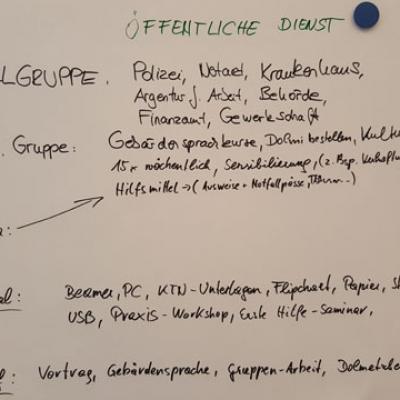 ÖFFENTLICHE DIENST
LGRUPPE. Polizei, Notaet, Krankenhaus,
Argentur f. Arbeit, Behörde,
Finanzamt, Gewerkschaft
. Gruppe: Gebärdensprachkurse, Dolmi bestellen, Kultu
15x wöchentlich, Sensibilisierung, (z. Bsp.
Hilfsmittel → (Ausweise + Notfallpässe,
:
al: Beamer, PC, KTN-Unterlagen, Flipchart, Papier, S
USB, Praxis-Workshop, Erste Hilfe-Seminar,
: Vortrag, Gebärdensprache, Gruppen-Arbeit, Dolmetsche